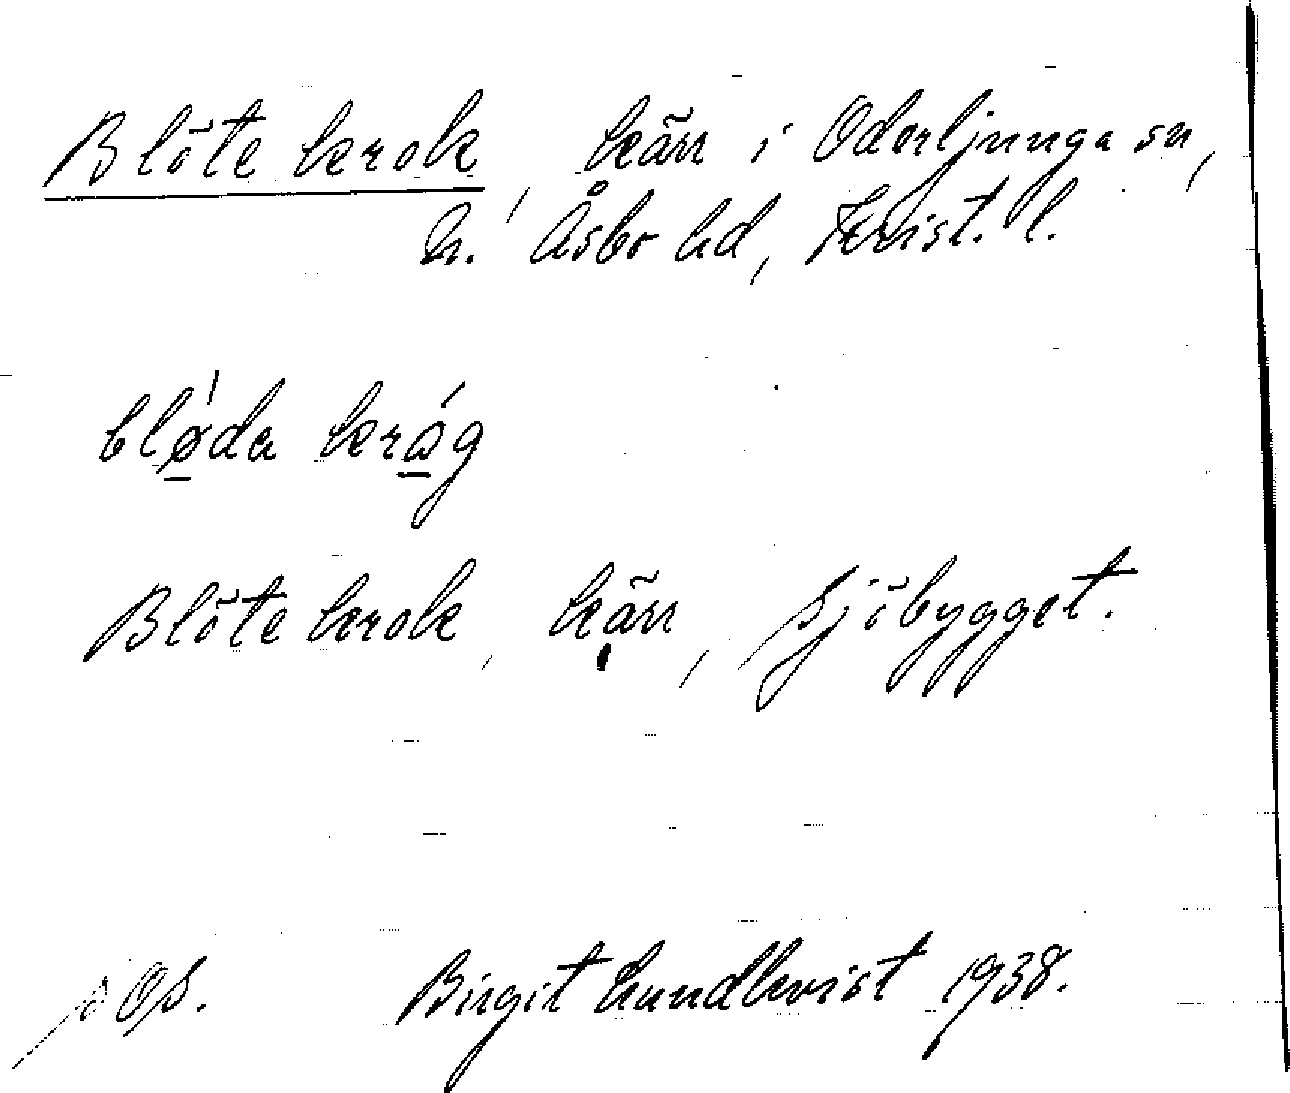 Blöte krok, kärr i Oderljunga sn,
N. Åsbo hd, Krist. l.
blǿ̲da krώ̲g
Blöte krok, kärr, Sjöbygget.
Birgit Lundkvist 1938.